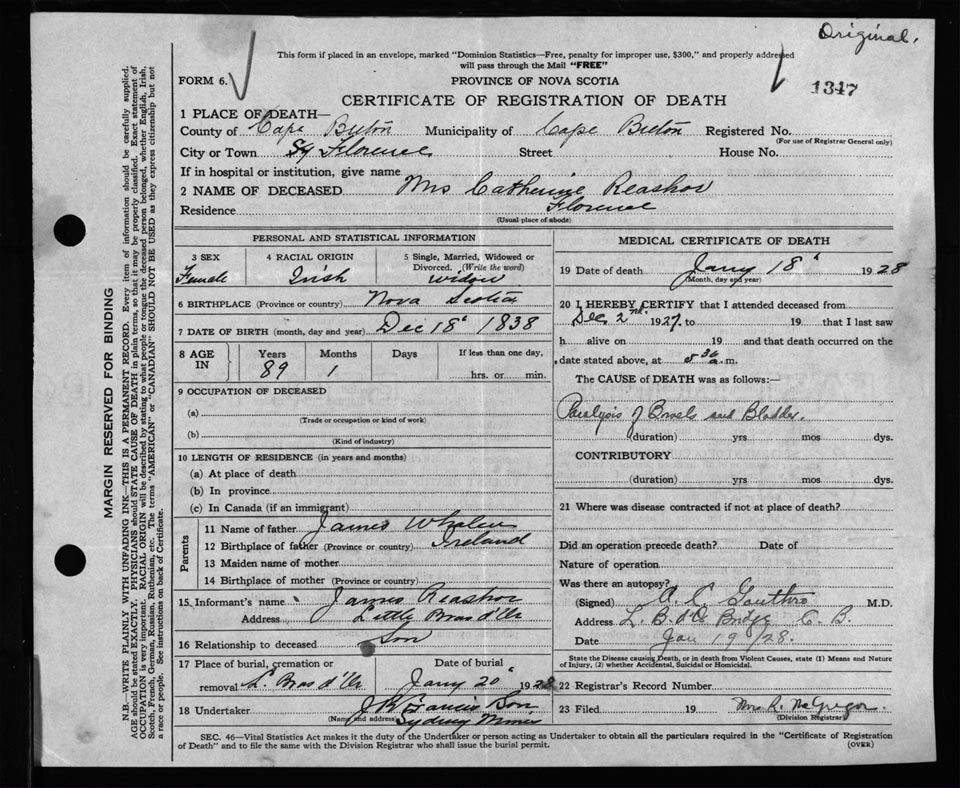 Original.
This form if placed in an envelope, marked "Dominion Statistics—Free, penalty for improper use, $300," and properly addressed
will pass through the Mail "FREE"
FORM 6.
PROVINCE OF NOVA SCOTIA
1347
CERTIFICATE OF REGISTRATION OF DEATH
1 PLACE OF DEATH—
County of Cape Breton Municipality of Cape Breton Registered No.
(For use of Registrar General only)
City or Town Florence Street House No.
If in hospital or institution, give name
2 NAME OF DECEASED Mrs Catherine Reashor
Residence Florence
(Usual place of abode)
PERSONAL AND STATISTICAL INFORMATION
3 SEX Female
4 RACIAL ORIGIN Irish
5 Single, Married, Widowed or Divorced. (Write the word) widow
6 BIRTHPLACE (Province or country) Nova Scotia
7 DATE OF BIRTH (month, day and year) Dec 18" 1838
8 AGE IN Years 89 Months 1 Days If less than one day, hrs. or min.
9 OCCUPATION OF DECEASED
(a)
(Trade or occupation or kind of work)
(b)
(Kind of industry)
10 LENGTH OF RESIDENCE (in years and months)
(a) At place of death
(b) In province
(c) In Canada (if an immigrant)
Parents
11 Name of father James Whalen
12 Birthplace of father (Province or country) Ireland
13 Maiden name of mother
14 Birthplace of mother (Province or country)
15 Informant's name James Reashor
Address Little Bras d'Or
16 Relationship to deceased Son
17 Place of burial, cremation or removal L. Bras d'Or Date of burial Jany 20" 1928
18 Undertaker Son
(Name and address) Sydney Mines
MEDICAL CERTIFICATE OF DEATH
19 Date of death Jany 18" 1928
(Month, day and year)
20 I HEREBY CERTIFY that I attended deceased from
Dec 2nd 1927. to 19 that I last saw
h alive on 19 and that death occurred on the
date stated above, at 5 30 a. m.
The CAUSE of DEATH was as follows:—
Paralysis of Bowels and Bladder.
(duration) yrs mos dys.
CONTRIBUTORY
(duration) yrs mos dys.
21 Where was disease contracted if not at place of death?
Did an operation precede death? Date of
Nature of operation
Was there an autopsy?
(Signed) M.D.
Address L. B. d'Or Bridge C. B.
Date Jan 19/28.
State the Disease causing Death, or in death from Violent Causes, state (1) Means and Nature
of Injury, (2) whether Accidental, Suicidal or Homicidal.
22 Registrar's Record Number
23 Filed 19 Mrs R. McGregor
(Division Registrar)
SEC. 46—Vital Statistics Act makes it the duty of the Undertaker or person acting as Undertaker to obtain all the particulars required in the "Certificate of Registration
of Death" and to file the same with the Division Registrar who shall issue the burial permit.
(OVER)
MARGIN RESERVED FOR BINDING
N.B.—WRITE PLAINLY WITH UNFADING INK—THIS IS A PERMANENT RECORD. Every item of information should be carefully supplied.
AGE should be stated EXACTLY. PHYSICIANS should STATE CAUSE OF DEATH in plain terms, so that it may be properly classified. Exact statement of
OCCUPATION is very important. RACIAL ORIGIN will be described by stating to what people or tongue the deceased person belonged, whether English, Irish,
Scotch, French, German, Russian, Ruthenian, etc. The terms "AMERICAN" or "CANADIAN" SHOULD NOT BE USED as they express citizenship but not
a race or people. See instructions on back of Certificate.